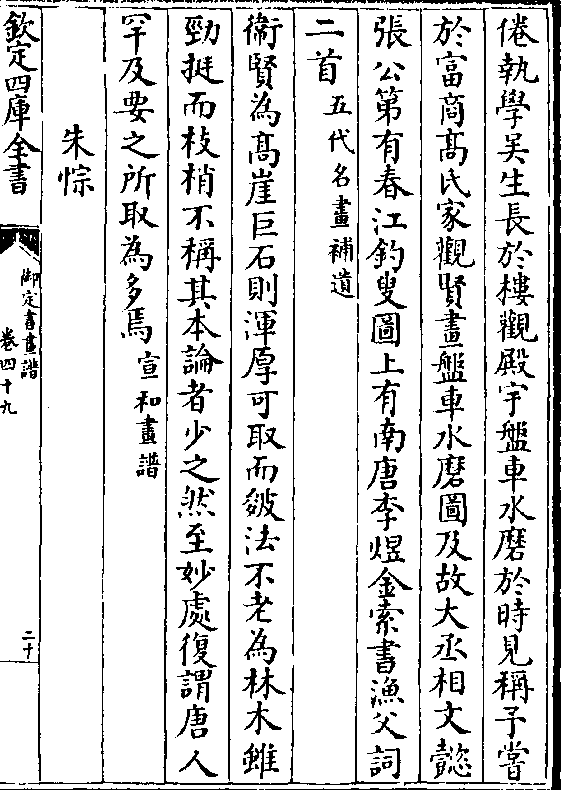 倦執學吴生長於樓觀殿宇盤車水磨於時見稱予嘗
於富商髙氏家觀賢畫盤車水磨圖及故大丞相文懿
張公第有春江釣叟圖上有南唐李煜金索書漁父詞
二首五代名畫補遺
衛賢為髙崖巨石則渾厚可取而皴法不老為林木雖
勁挺而枝梢不稱其本論者少之然至妙處復謂唐人
罕及要之所取為多焉宣和畫譜
朱悰
欽定四庫全書
御定書畫譜
卷四十九
二十